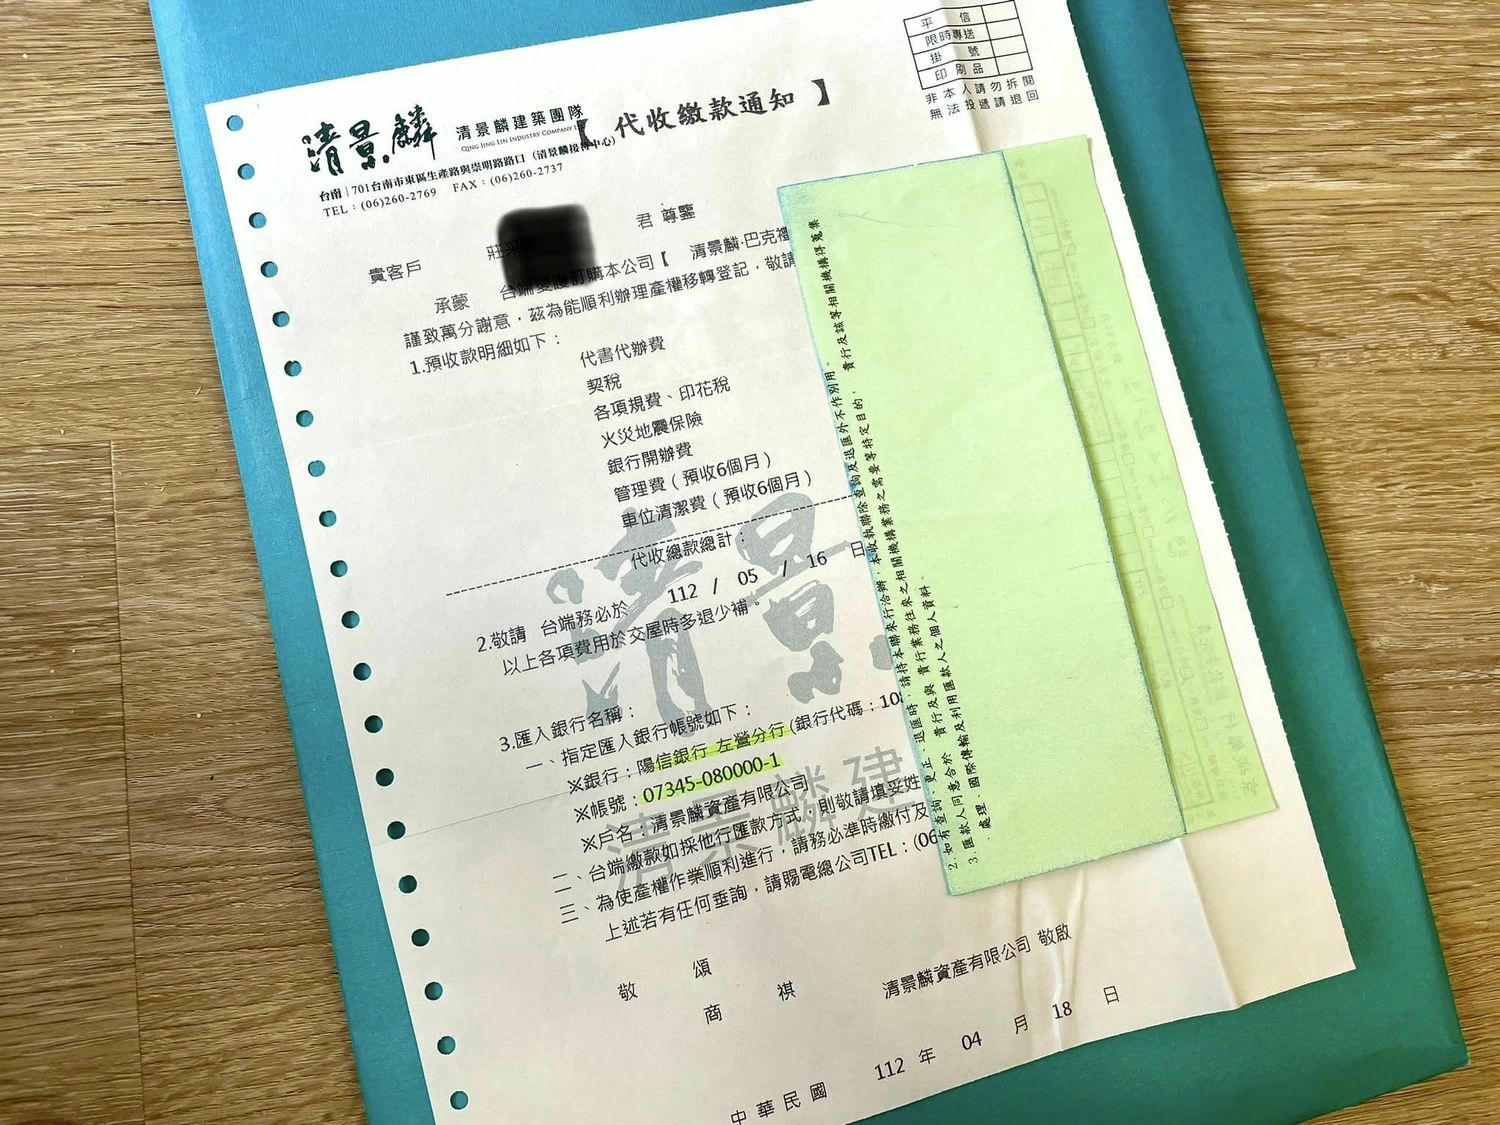 平 信
限時專送
掛 號
印刷品
非本人請勿拆閱
無法投遞請退回
清景麟 清景麟建築團隊
QING JING LIN INDUSTRY COMPANY
【 代收繳款通知 】
台南｜701台南市東區生產路與崇明路路口（清景麟接待中心）
TEL：(06)260-2769 FAX：(06)260-2737
貴客戶 莊采 君 尊鑒
承蒙 台端愛護訂購本公司【 清景麟‧巴克禮
謹致萬分謝意，茲為能順利辦理產權移轉登記，敬請
1.預收款明細如下：
代書代辦費
契稅
各項規費、印花稅
火災地震保險
銀行開辦費
管理費（預收6個月）
車位清潔費（預收6個月）
代收總款總計：
2.敬請 台端務必於 112 / 05 / 16 日
以上各項費用於交屋時多退少補。
3.匯入銀行名稱：
一、指定匯入銀行帳號如下：
※銀行：陽信銀行 左營分行(銀行代碼：108
※帳號：07345-080000-1
※戶名：清景麟資產有限公司
二、台端繳款如採他行匯款方式，則敬請填妥姓
三、為使產權作業順利進行，請務必準時繳付及
上述若有任何垂詢，請賜電總公司TEL：(06
敬 頌
商 祺
清景麟資產有限公司 敬啟
中華民國 112 年 04 月 18 日
清景
清景麟建
貴行及該等相關機構得蒐集
2.如有查詢、更正、退匯時，請持本聯來行洽辦，本收執聯除查詢及退匯外不作別用。
3.匯款人同意合於 貴行及與 貴行業務往來之相關機構業務之需要等特定目的、
、處理、國際傳輸及利用匯款人之個人資料。